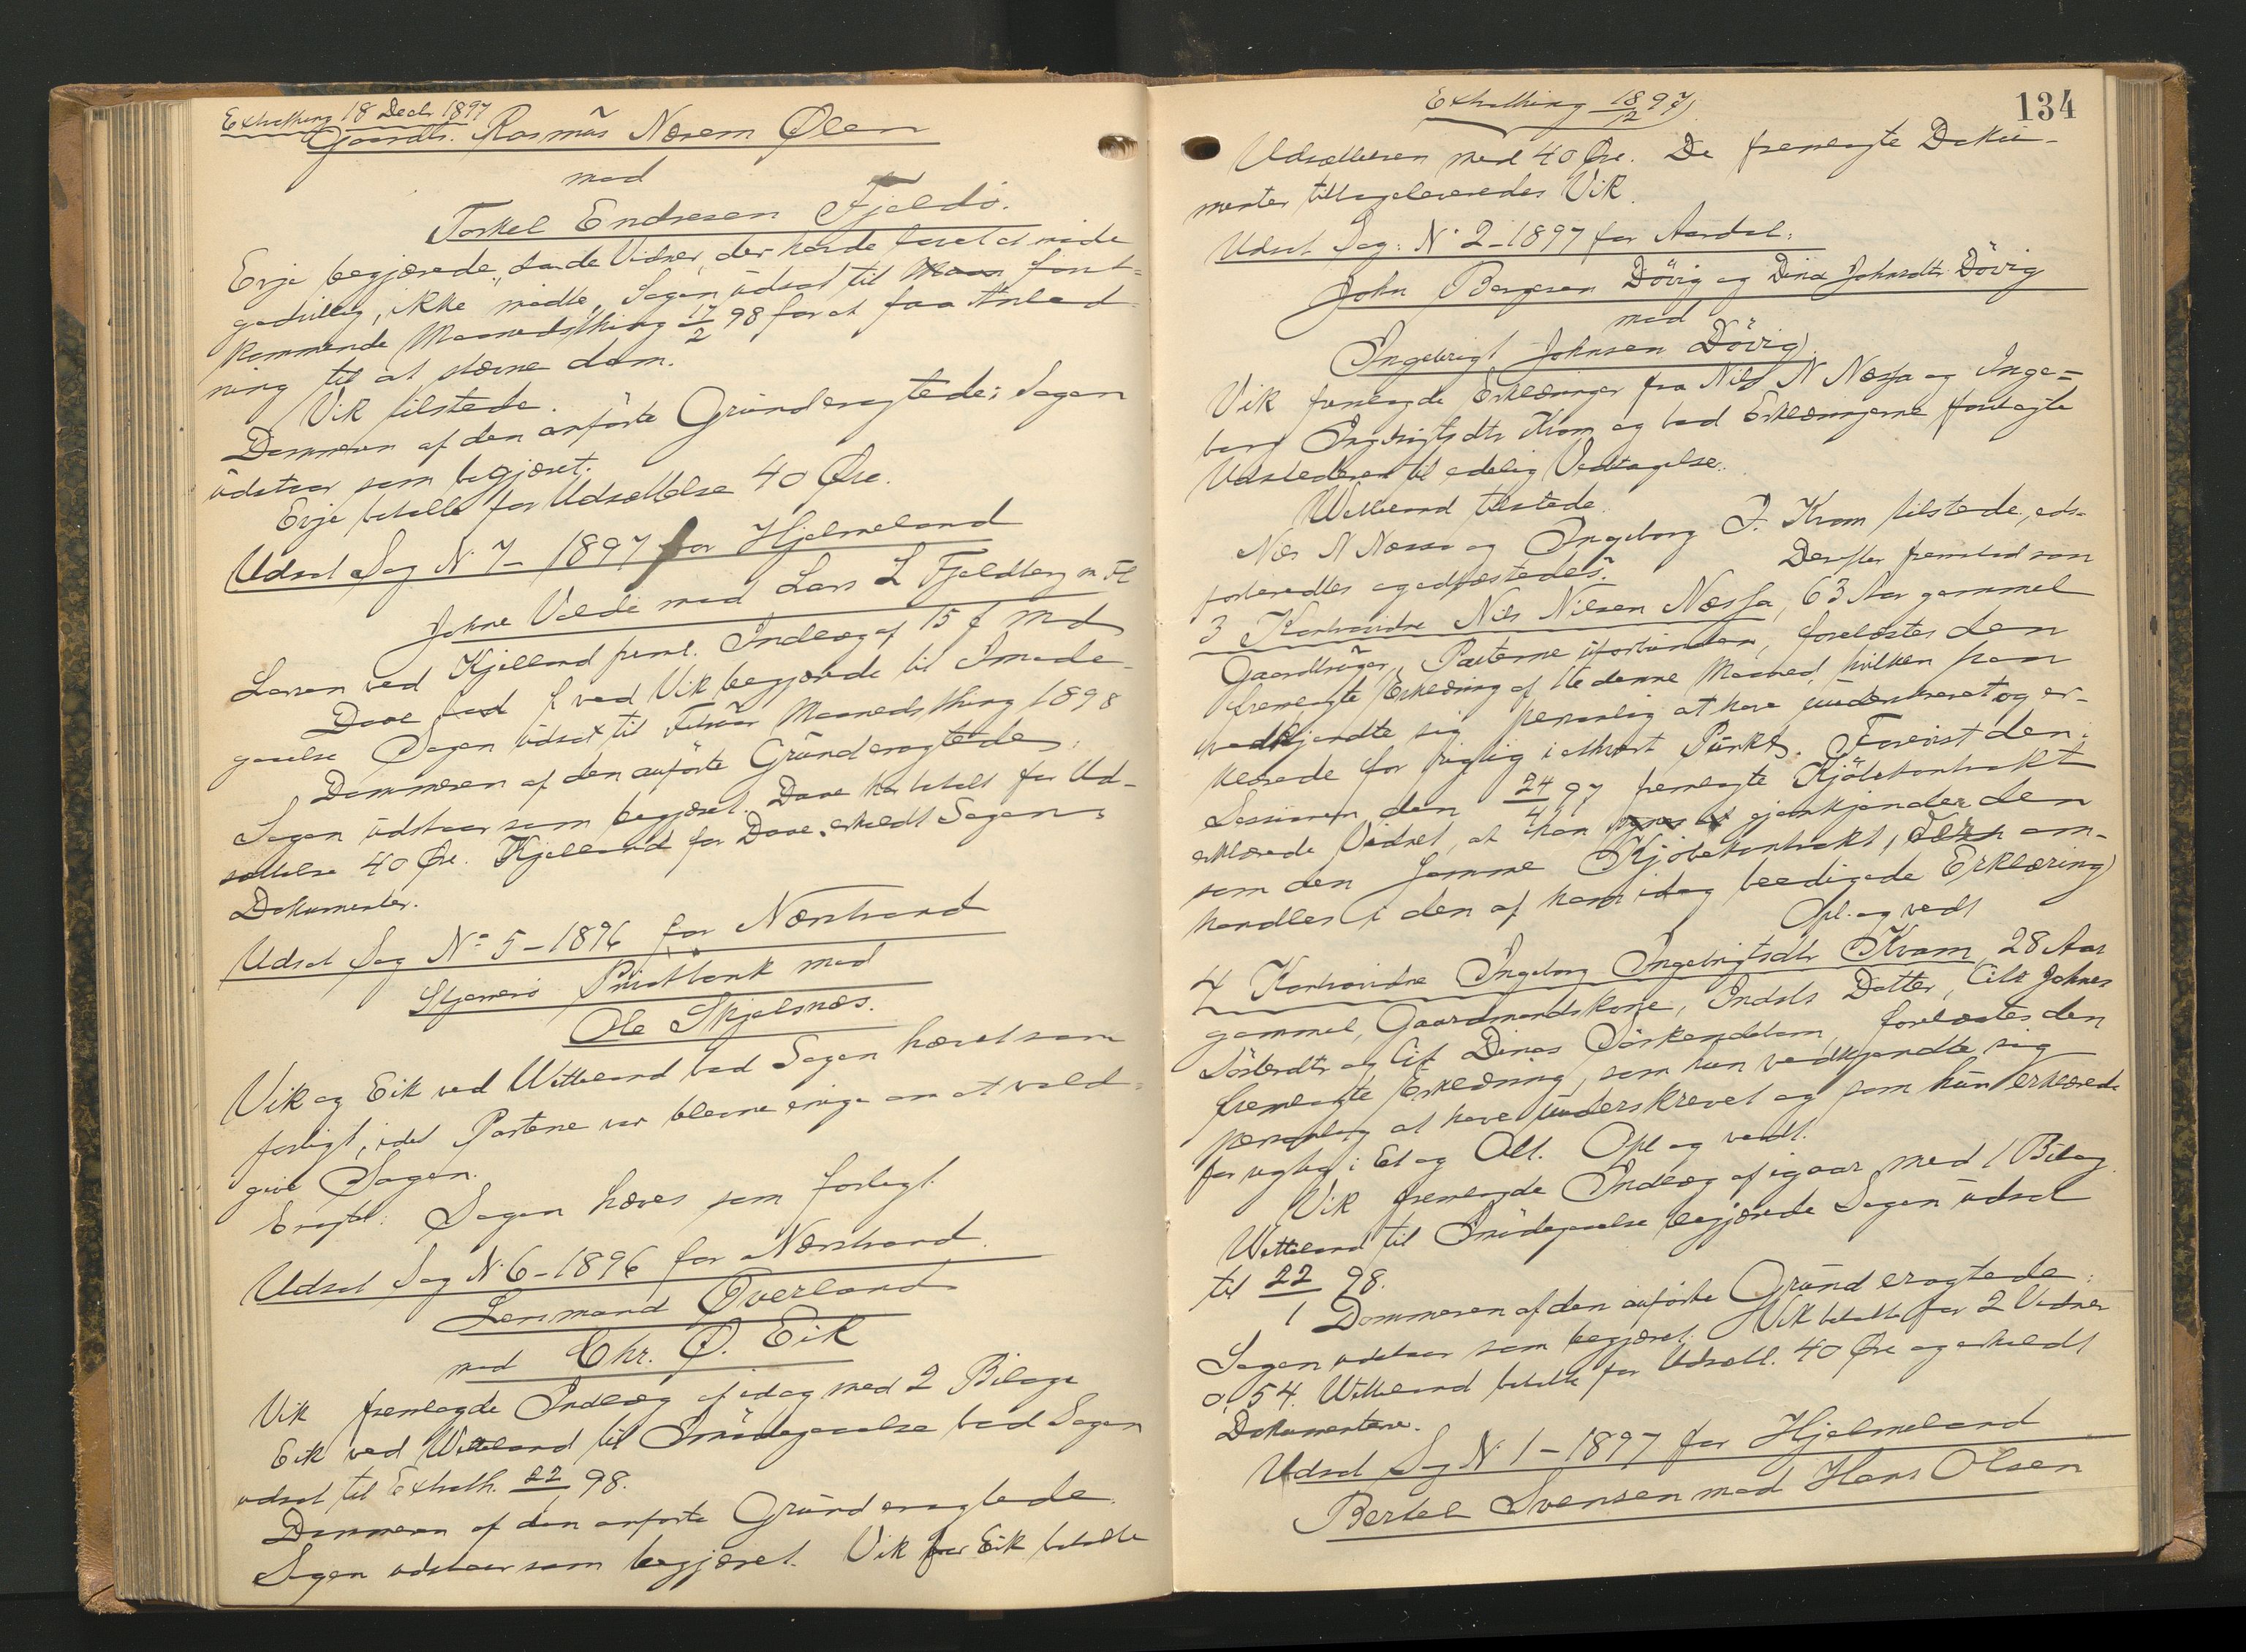 Extrathing 18 Decb 1897
Gaardb. Rasmus Nærem Ølen
mod
Torkel Endresen Fjeldö.
Evje begjærede, da de Vidner, der havde lovet at møde
godvillig, ikke mödte, Sagen udsat til först-
kommende Maanedsthing 17/2 98 for at faa Anled-
ning til at stævne dem.
Vik tilstede.
Dommeren af den anförte Grund eragtede: Sagen
udstaar som begjæret.
Evje betalte for Udsættelse 40 Øre.
Udsat Sag N. 7 - 1897 for Hjelmeland
Johne Valde mod Lars L Fjeldberg m. Fl
Larsen ved Kjelland freml. Indlæg af 15 ds m d
Daae ved Vik begjærede til Imøde-
gaaelse Sagen udsat til Februar Maanedsthing 1898
Dommeren af den anförte Grund eragtede:
Sagen udstaar som begjæret. Daae har betalt for Ud-
sættelse 40 Øre. Kjelland for Daae erholdt Sagens
Dokumenter.
Udsat Sag No 5 - 1896 for Nærstrand
Stjernerö Privatbank mod
Ole Skjelsnæs.
Vik og Eik ved Wetteland bad Sagen hævet som
forligt, idet Parterne var blevne enige om at vold-
give Sagen.
Eragtet: Sagen hæves som forligt.
Udsat Sag N. 6 - 1896 for Nærstrand.
Lensmand Øverland
mod Chr. O. Eik
Vik fremlagde Indlæg af idag med 2 Bilage
Eik ved Wetteland til Imödegaaelse bad Sagen
udsat til Extrath. 22/1 98.
Dommeren af den anförte Grund eragtede.
Sagen udstaar som begjæret. Vik for Eik betalte
Extrathing 18/12 97
134
Udsættelsen med 40 Øre. De fremlagte Doku-
menter tilbageleveredes Vik.
Udsat Sag: N. 2 - 1897 for Aardal:
John Bergesen Dövig og Dina Johnsdtr Dövig
mod
Ingebrigt Johnsen Dövig
Vik fremlagde Erklæringer fra Nils N Nessa og Inge-
borg Ingebrigtsdtr Kvam og bad Erklæringerne forelagte
Udstederen til edelig Vedtagelse.
Wetteland tilstede.
Nils N Nessa og Ingeborg I. Kvam tilstede, eds-
forberedtes og edfæstedes. Derefter fremstod som
3 Kontravidne Nils Nilsen Nessa, 63 Aar gammel
Gaardbruger, Parterne uforbunden, forelæstes den
fremlagte Erklæring af denne Maaned, hvilken han
vedkjendte sig personlig at have underskrevet og er-
klærede for rigtig i ethvert Punkt. Forevist den i
Sessionen den 24/4 97 fremlagte Kjöbekontrakt
erklærede Vidnet, at han gjenkjender den
som den samme Kjöbekontrakt, om-
handles i den af ham idag beedigede Erklæring
Opl. og vedt
4 Kontravidne Ingeborg Ingebrigtsdtr Kvam, 28 Aar
gammel, Gaardmandskone, Indsts Datter, Cit Johnes
Sösterdtr og Cit Dinas Söskendebarn, forelæstes den
fremlagte Erklæring, som hun vedkjendte sig
personlig at have underskrevet og som hun erklærede
for rigtig i Et og Alt. Opl og vedt.
Vik fremlagde Indlæg af igaar med 1 Bilag.
Wetteland til Imödegaaelse begjærede Sagen udsat
til 22/1 98.
Dommeren af den anförte Grund eragtede:
Sagen udstaar som begjæret. Vik betalte for 2 Vidner
0,54. Wetteland betalte for Udsætt. 40 Øre og erholdt
Dokumenterne.
Udsat Sag N. 1 - 1897 for Hjelmeland
Bertel Svensen mod Hans Olsen